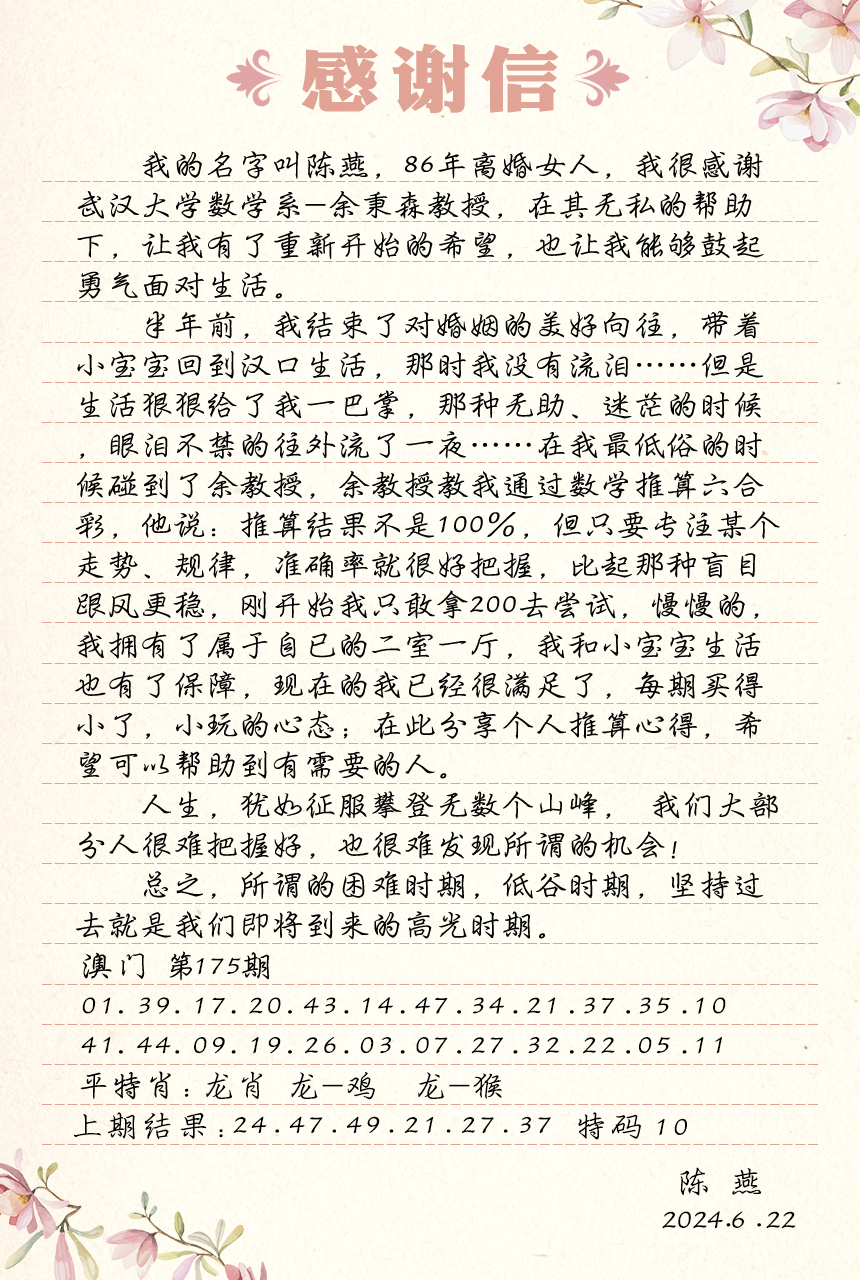 感谢信
我的名字叫陈燕，86年离婚女人，我很感谢
武汉大学数学系—余秉森教授，在其无私的帮助
下，让我有了重新开始的希望，也让我能够鼓起
勇气面对生活。
半年前，我结束了对婚姻的美好向往，带着
小宝宝回到汉口生活，那时我没有流泪……但是
生活狠狠给了我一巴掌，那种无助、迷茫的时候
，眼泪不禁的往外流了一夜……在我最低俗的时
候碰到了余教授，余教授教我通过数学推算六合
彩，他说：推算结果不是100%，但只要专注某个
走势、规律，准确率就很好把握，比起那种盲目
跟风更稳，刚开始我只敢拿200去尝试，慢慢的，
我拥有了属于自已的二室一厅，我和小宝宝生活
也有了保障，现在的我已经很满足了，每期买得
小了，小玩的心态；在此分享个人推算心得，希
望可以帮助到有需要的人。
人生，犹如征服攀登无数个山峰， 我们大部
分人很难把握好，也很难发现所谓的机会！
总之，所谓的困难时期，低谷时期，坚持过
去就是我们即将到来的高光时期。
澳门 第175期
01.39.17.20.43.14.47.34.21.37.35.10
41.44.09.19.26.03.07.27.32.22.05.11
平特肖：龙肖 龙—鸡 龙—猴
上期结果：24.47.49.21.27.37 特码 10
陈 燕
2024.6.22